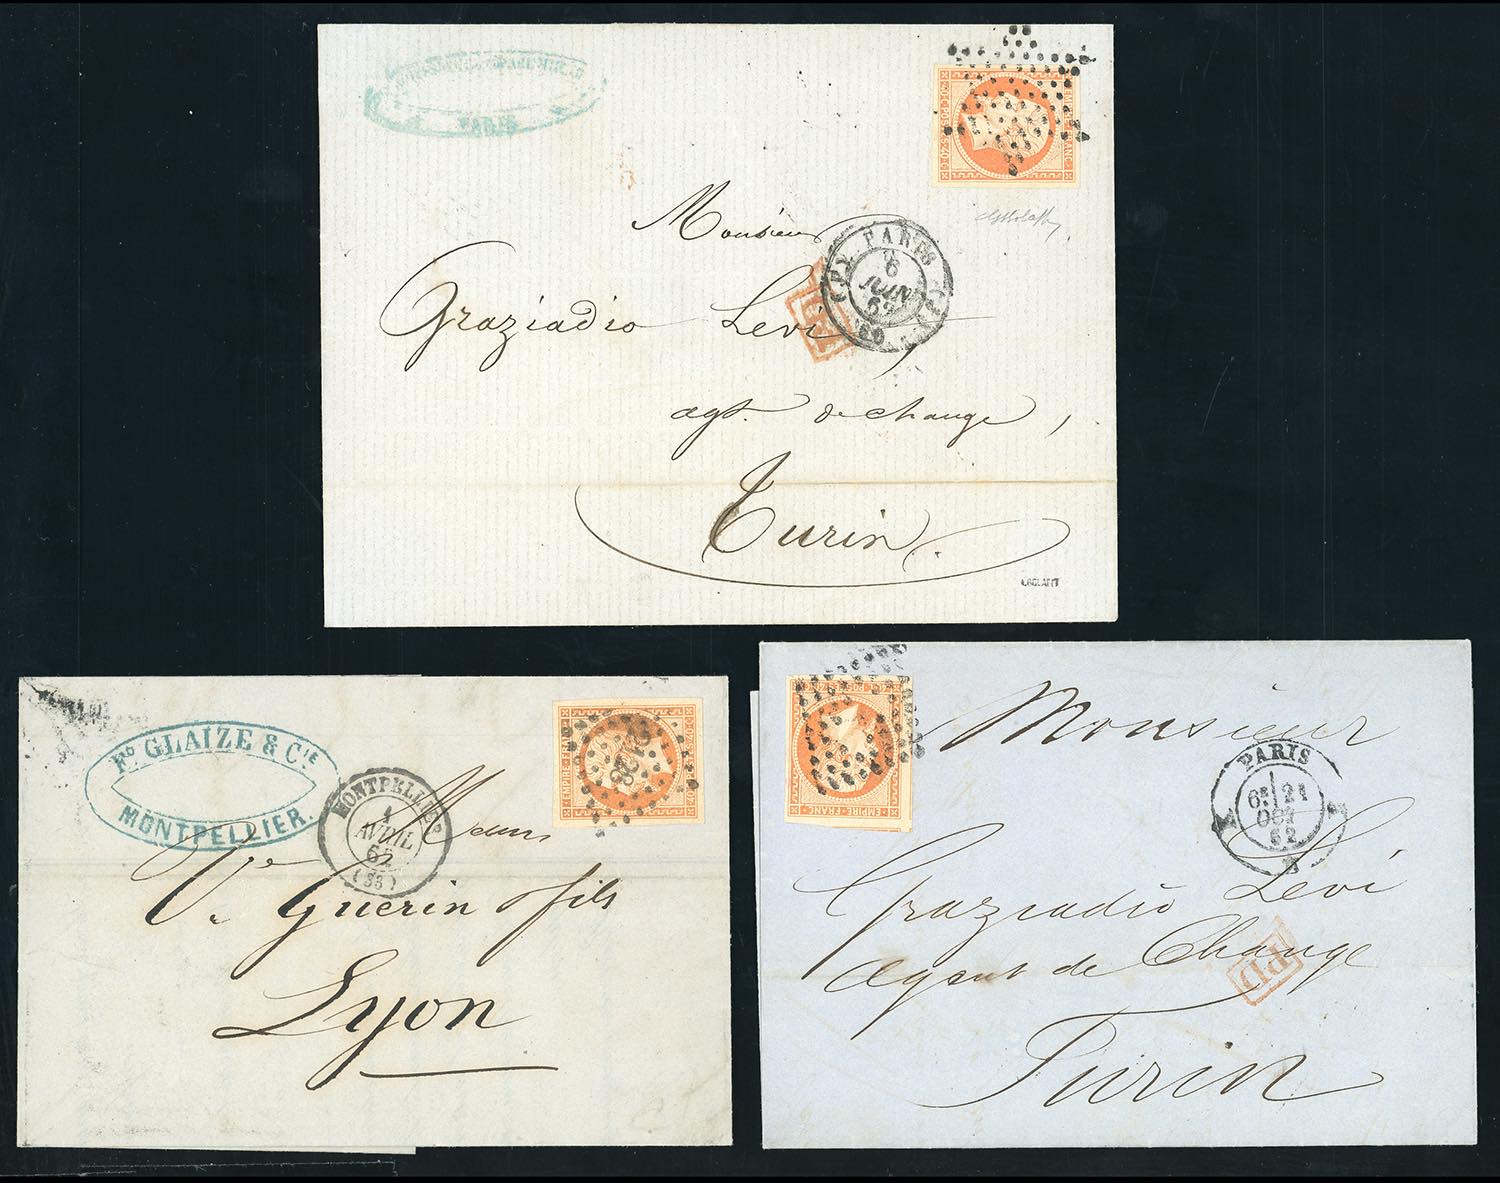 PARIS
EMPIRE FRANC
Monsieur
PARIS
6
JUIN
62
(60)
Graziadio Levi
agt. de change,
Turin.
Fs GLAIZE & Cie
MONTPELLIER.
MONTPELLIER
1
AVRIL
62
(33)
EMPIRE FRANC
Ve Guerin & fils
Lyon
EMPIRE FRANC
Monsieur
PARIS
21
OCT
62
Graziadio Levi
Agent de Change
PD
Turin